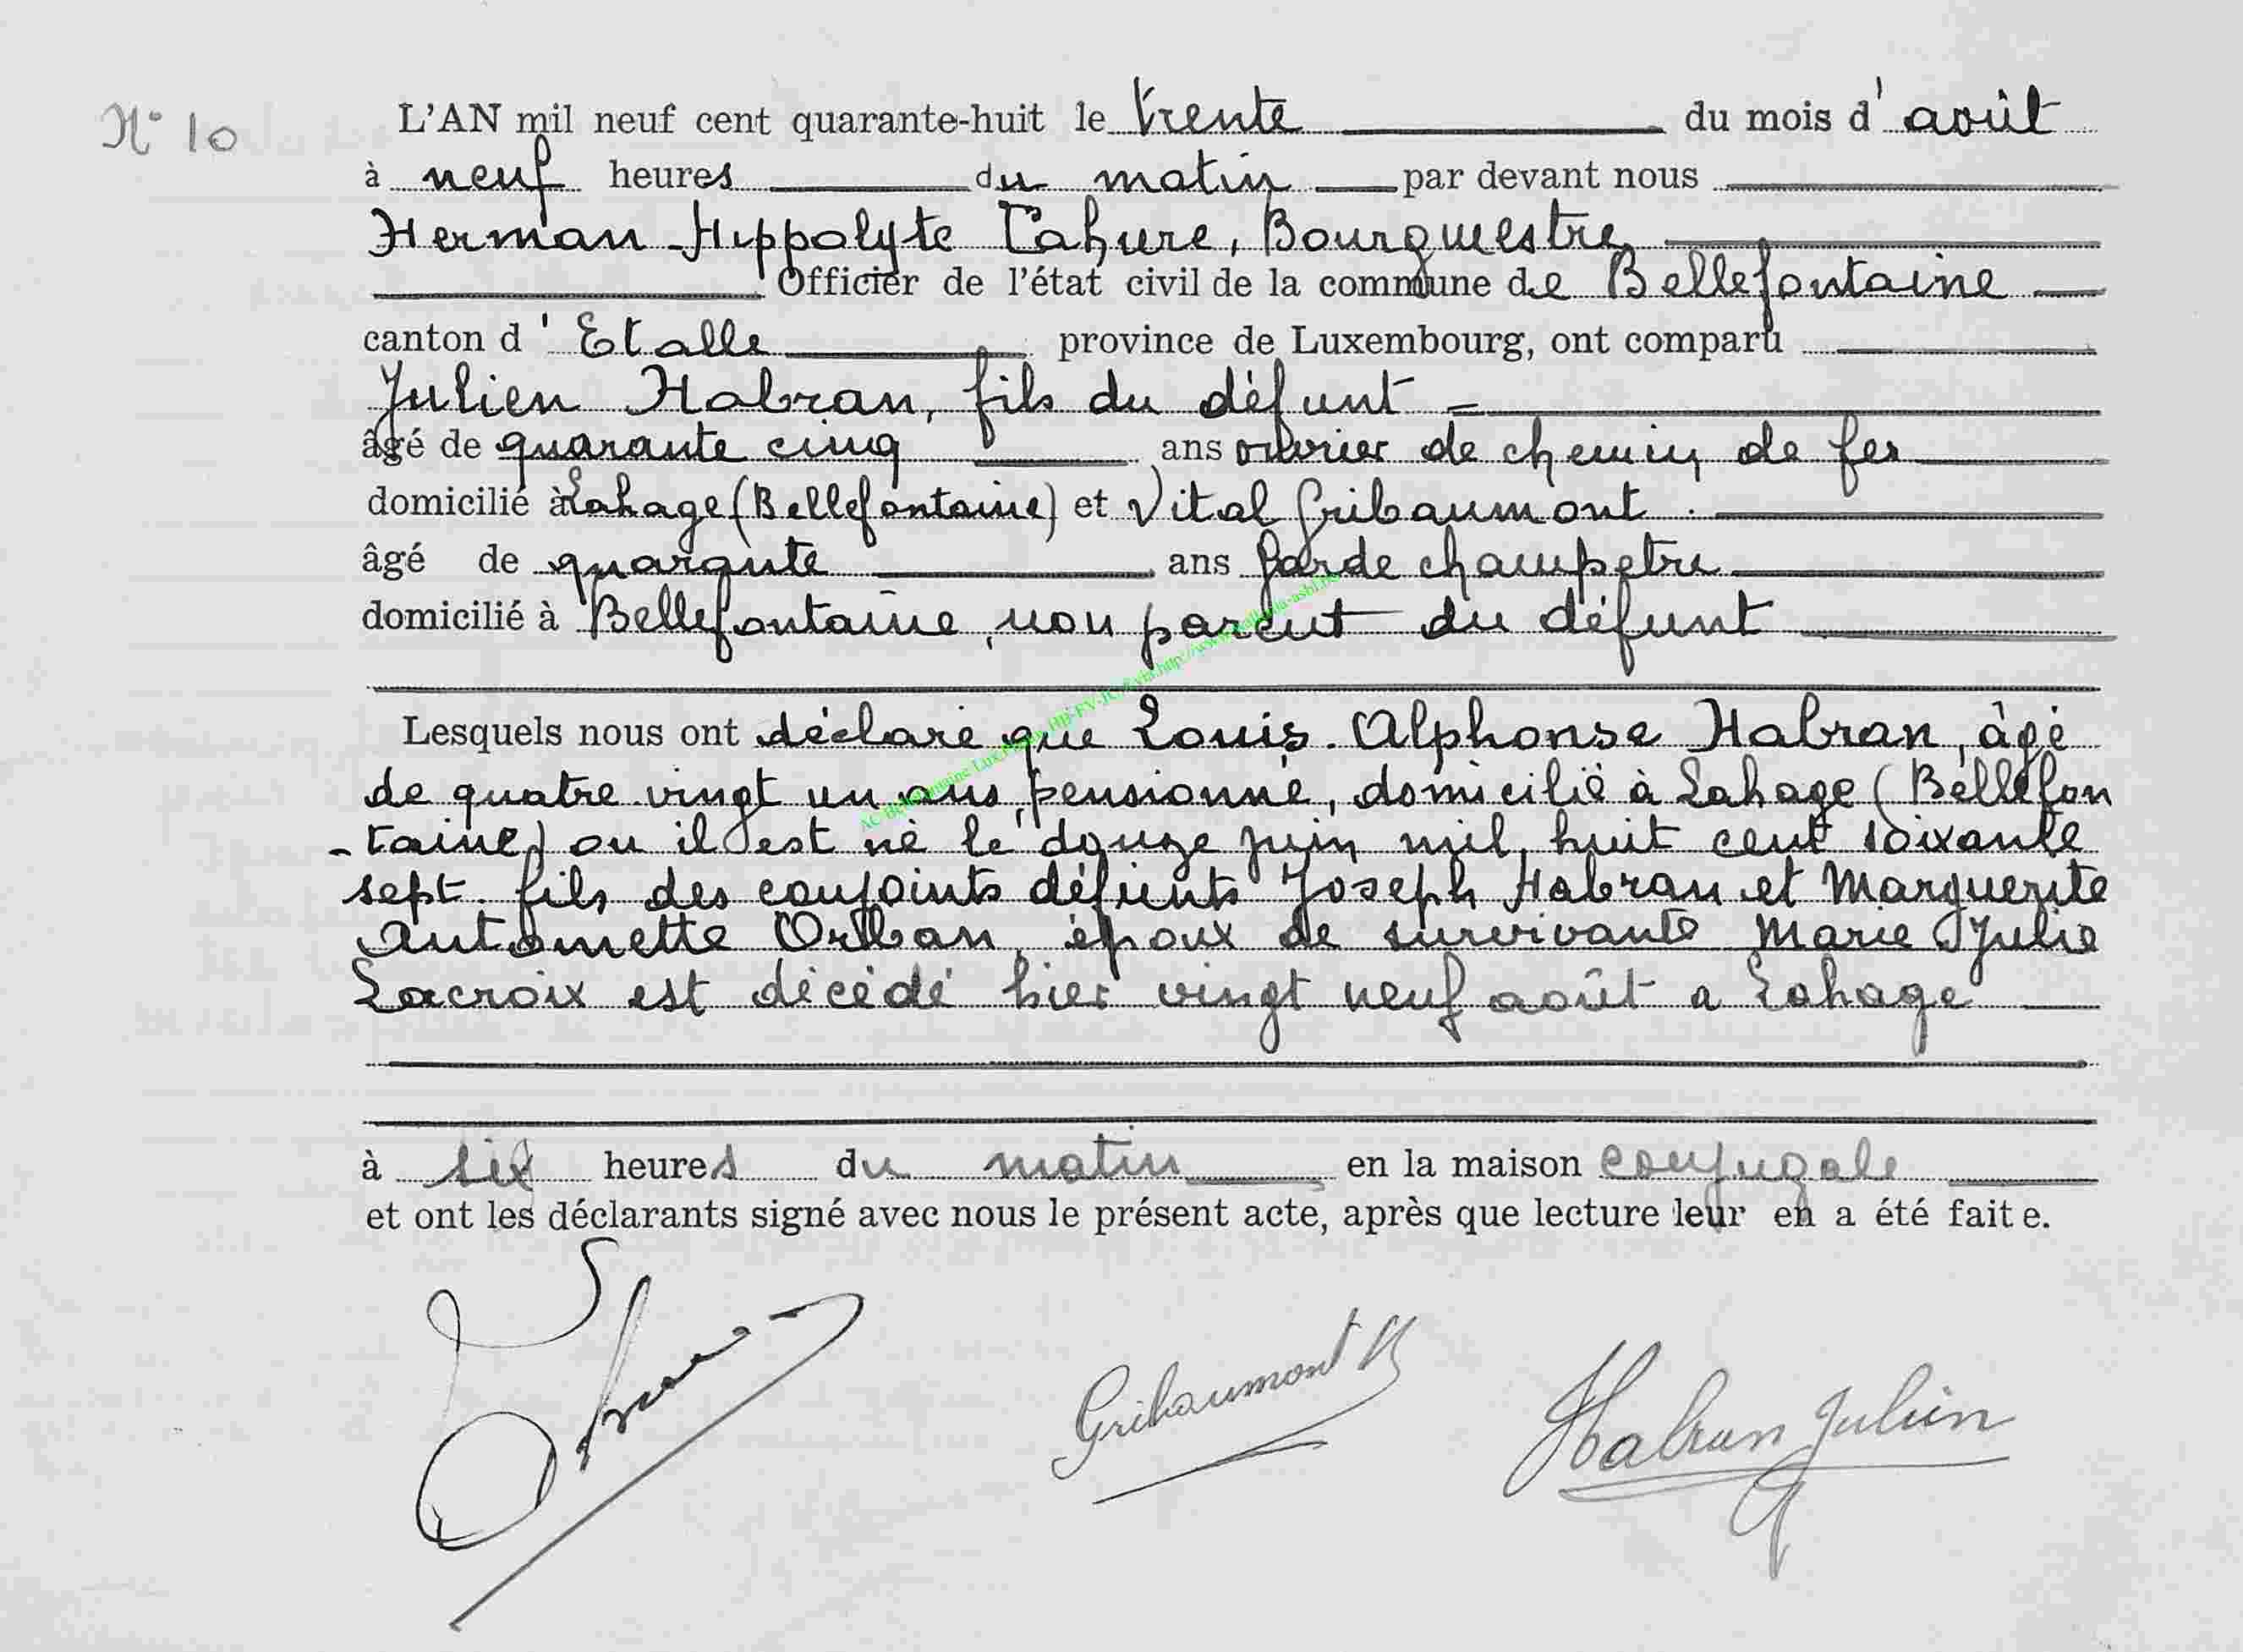 N° 10
L'AN mil neuf cent quarante-huit le trente du mois d'août
à neuf heures du matin par devant nous
Herman-Hippolyte Cahure, Bourgmestre
Officier de l'état civil de la commune de Bellefontaine
canton d'Etalle province de Luxembourg, ont comparu
Julien Habran, fils du défunt
âgé de quarante cinq ans ouvrier de chemin de fer
domicilié à Lahage (Bellefontaine) et Vital Gribaumont.
âgé de quarante ans garde champetre
domicilié à Bellefontaine, non parent du défunt
Lesquels nous ont déclaré que Louis-Alphonse Habran, âgé
de quatre-vingt un ans, pensionné, domicilié à Lahage (Bellefon
-taine) ou il est né le douze juin mil huit cent soixante
sept. fils des conjoints défunts Joseph Habran et Marguerite
Antoinette Orban, époux de survivante Marie Julie
Lacroix est décédé hier vingt neuf août a Lahage
à six heures du matin en la maison conjugale
et ont les déclarants signé avec nous le présent acte, après que lecture leur en a été faite.
Gribaumont V
Habran Julien